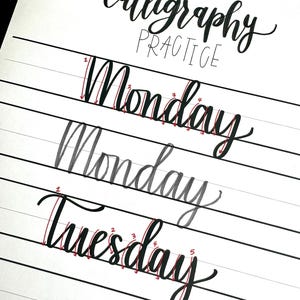 Calligraphy
PRACTICE
Monday
Monday
Tuesday